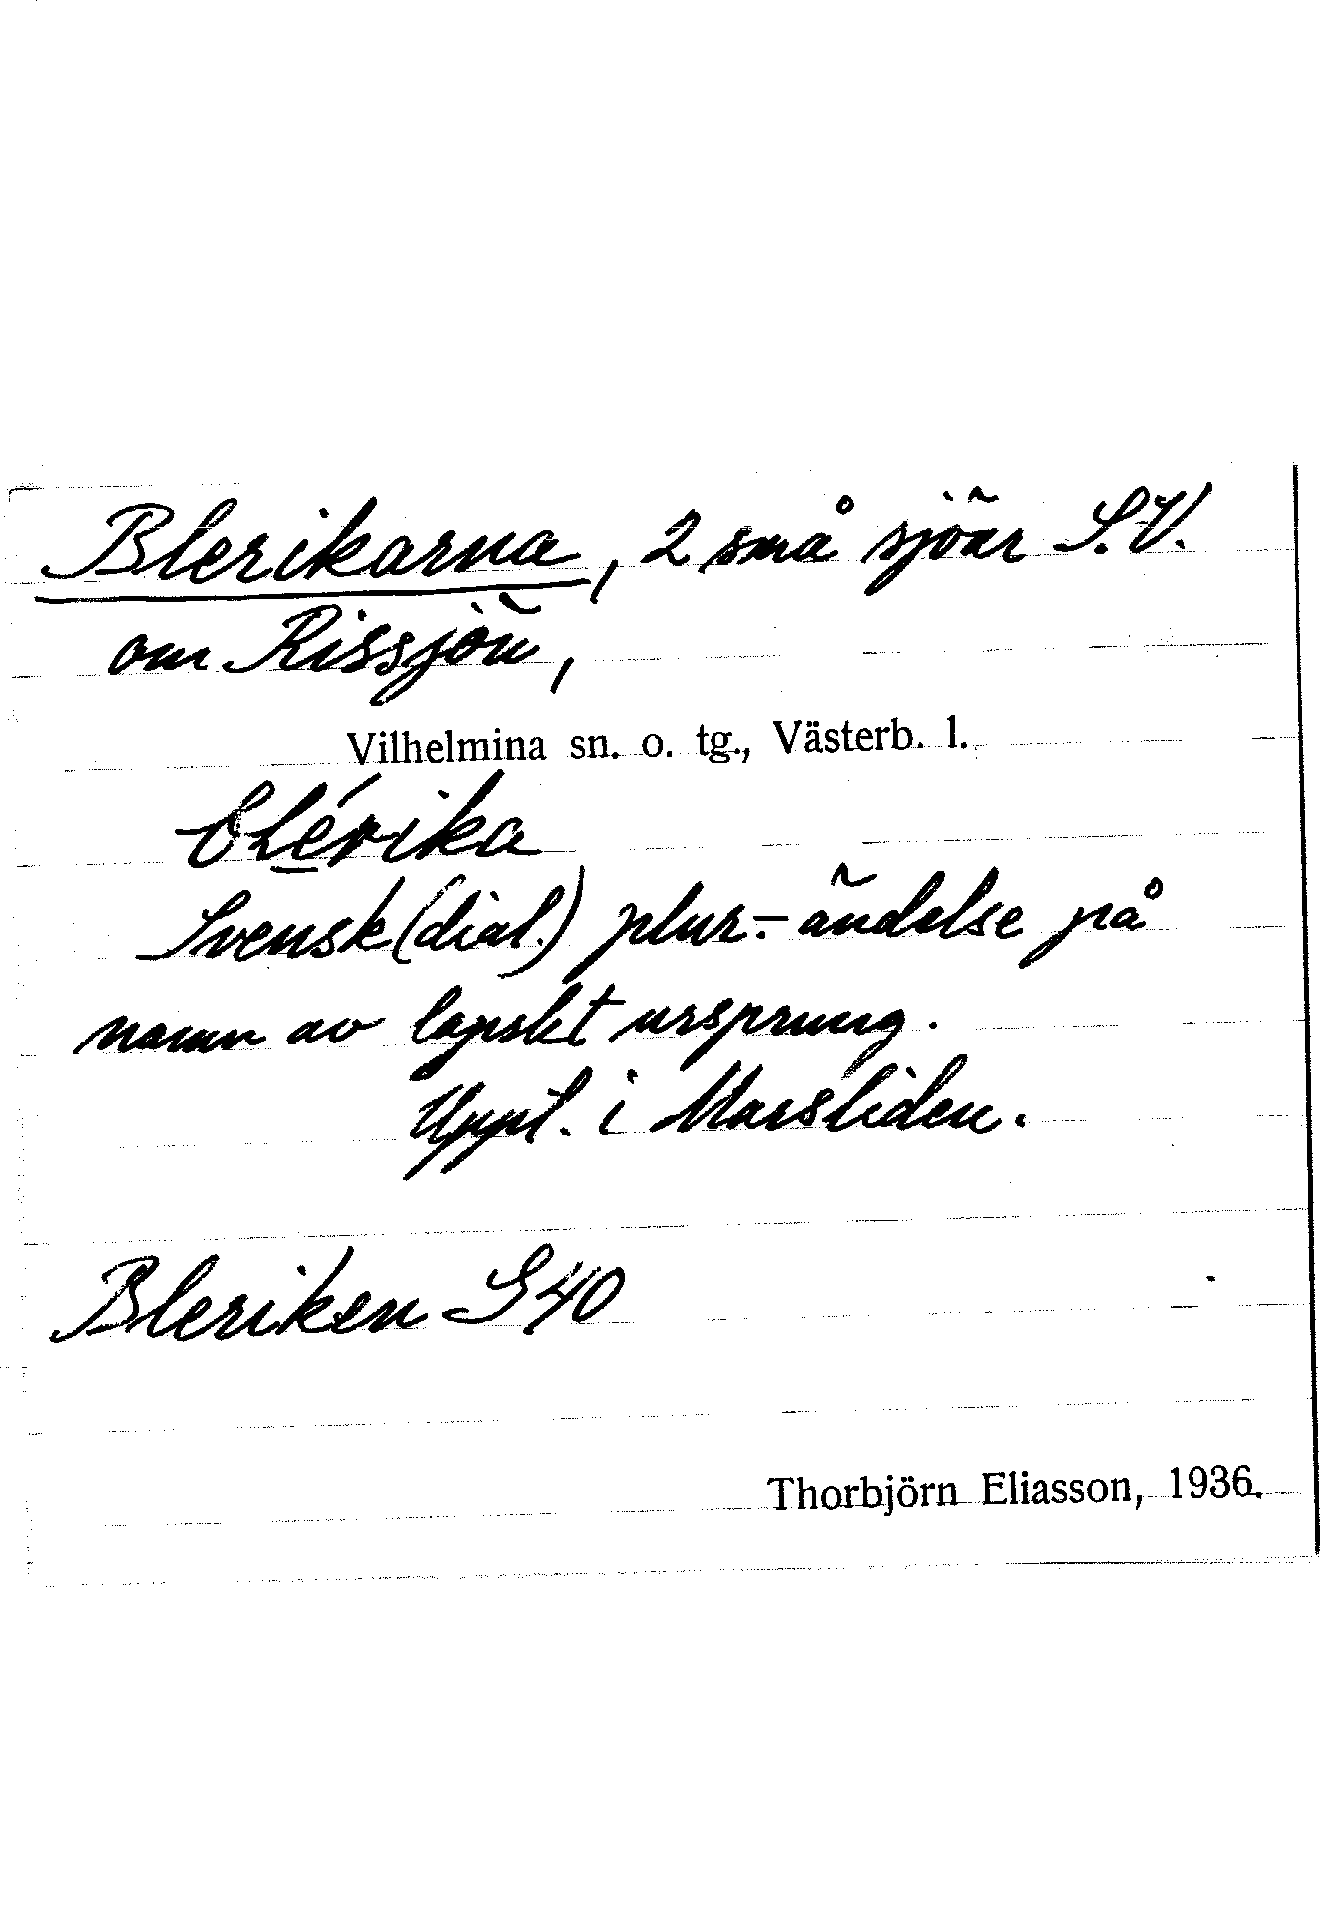 Blerikarna, 2 små sjöar S.V.
om Rissjön,
Vilhelmina sn. o. tg., Västerb. l.
Svensk (dial.) plur.-ändelse på
namn av lapskt ursprung.
Uppt. i Marsliden.
Bleriken S40
Thorbjörn Eliasson, 1936.